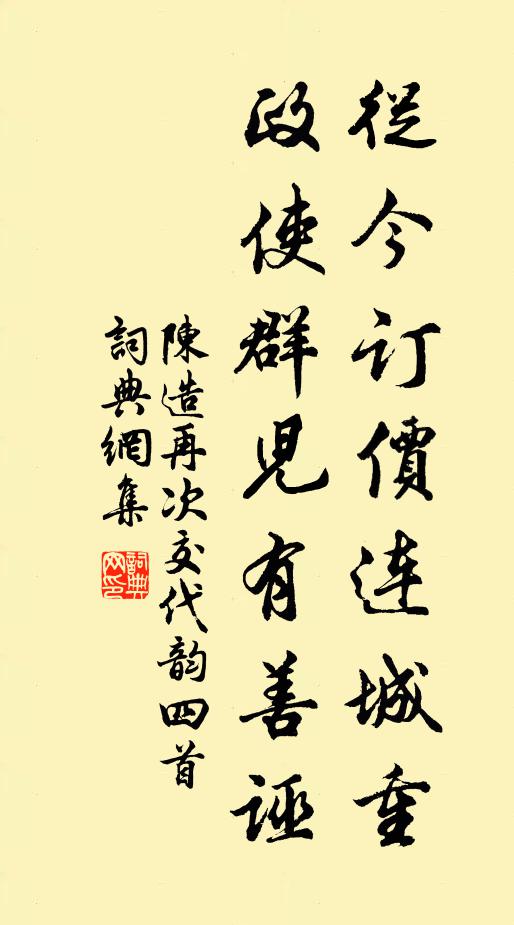 從今订價連城重
政使群児有善誣
陳造再次交代韵四首
詞典網集
詞典网印